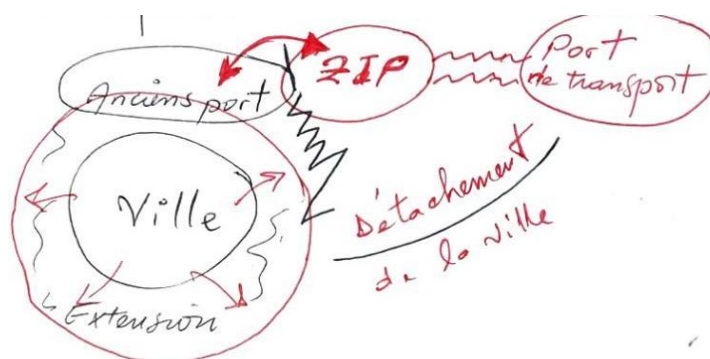 Anciens port
ZIP
Port
de transport
Ville
Extension
Détachement
de la ville